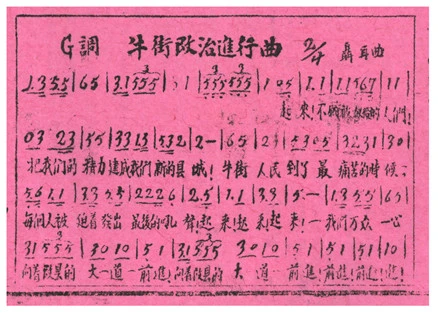 G調 牛街政治進行曲 2/4 聶耳曲
1.3 5 5 | 6 5 | 3.1 5 5 5 | 3 1 | 5 5 5 5 5 5 | 1 0 5 | 1.1 | 1.1 5 6 7 | 1 1 |
起 來! 不 的人們!
0 3 2 3 | 5 5 | 3 3 1 3 | 5 3 2 | 2 - | 6 5 | 2 3 | 5 3 0 5 | 3 2 3 1 | 3 0 |
把我們的 精力 建成我們 新的县 城! 牛街 人民 到了 最 痛苦的時 候,
5.6 1 1 | 3.3 5 5 | 2 2 2 6 | 2.5 | 1.1 | 3.3 | 5 - | 1.3 5 5 | 6 5
每個人被 迫着發出 最後的吼 聲! 起 來! 起 來! 起 來! 我們万众 一心
3.1 5 5 5 | 3 0 1 0 | 5 1 | 3.1 5 5 5 | 3 0 1 0 | 5 1 | 5 1 | 5 1 | 1 0 |
向着 的 大 道 前進! 向着 的 大 道 前進! 前進! 前進! 進!